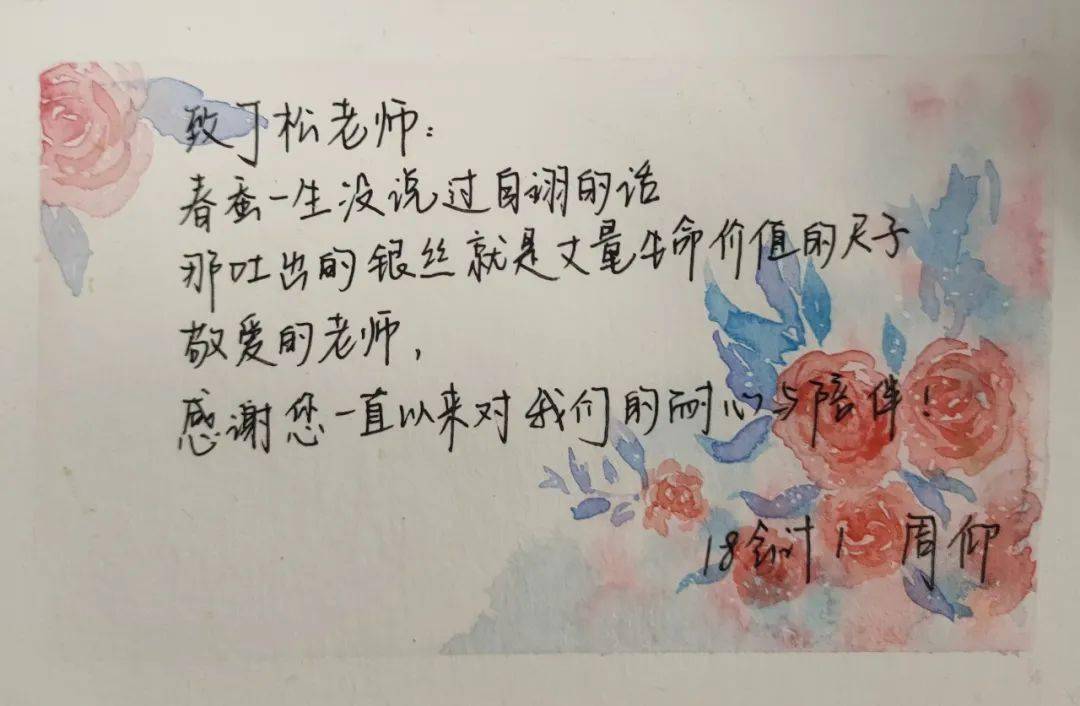 致于松老师：
春蚕一生没说过自诩的话
那吐出的银丝就是丈量生命价值的尺子
敬爱的老师，
感谢您一直以来对我们的耐心与陪伴！
18会计1 周仰